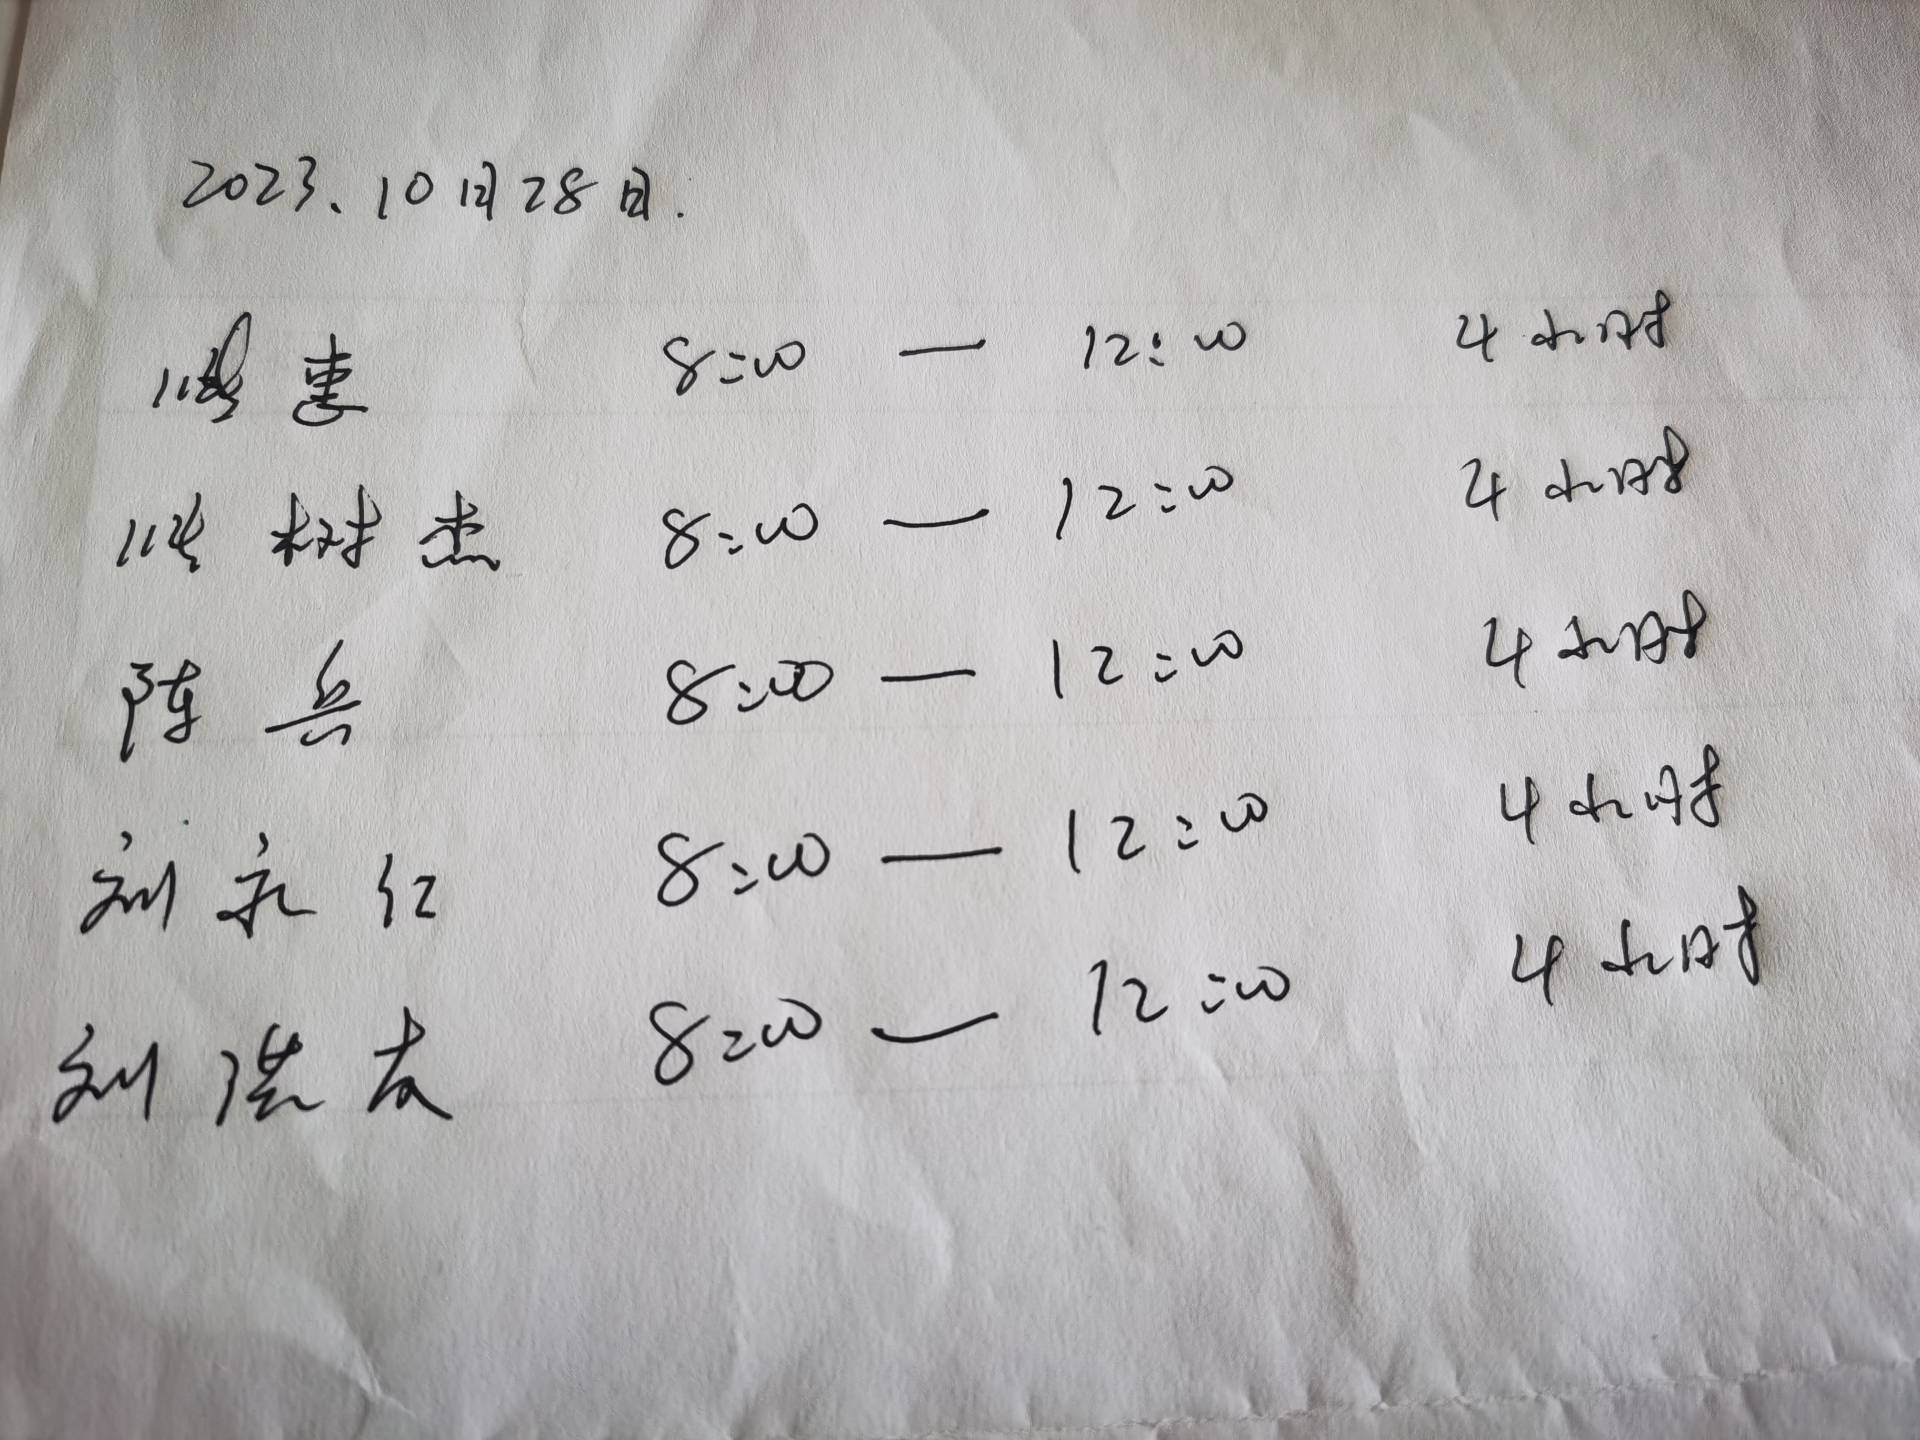 2023、10月28日.
惠 8:00 — 12:00 4小时
树杰 8:00 — 12:00 4小时
陈兵 8:00 — 12:00 4小时
刘永仁 8:00 — 12:00 4小时
刘洪友 8:00 — 12:00 4小时